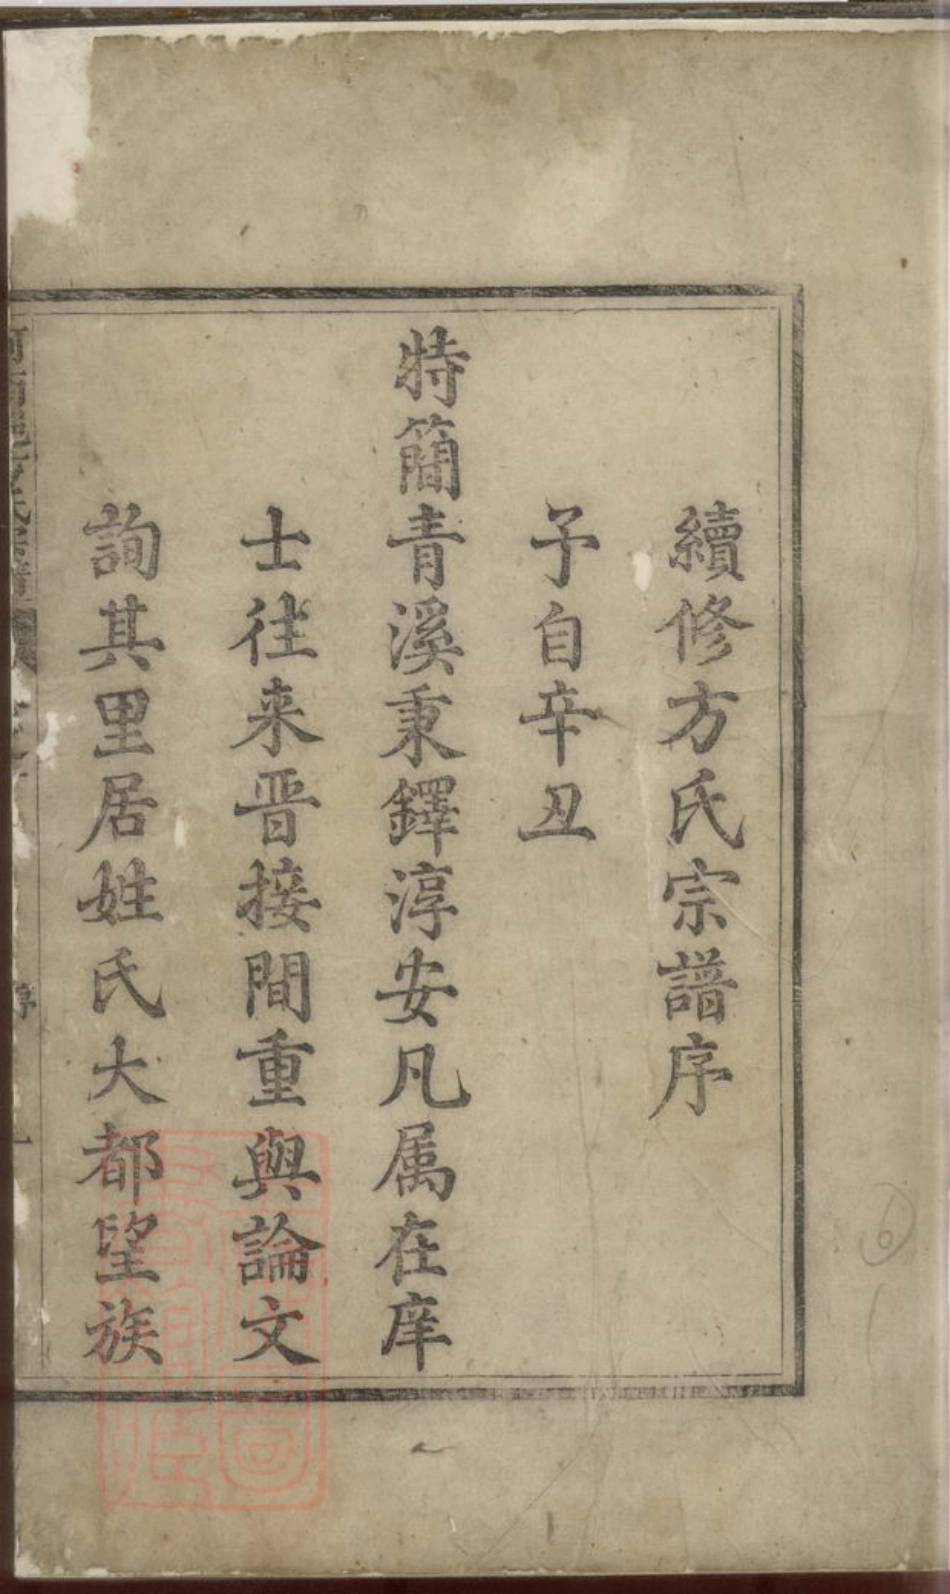 續修方氏宗譜序
予自辛丑
特簡青溪秉鐸淳安凡属在庠
士往来晋接間重與論文
詢其里居姓氏大都望族